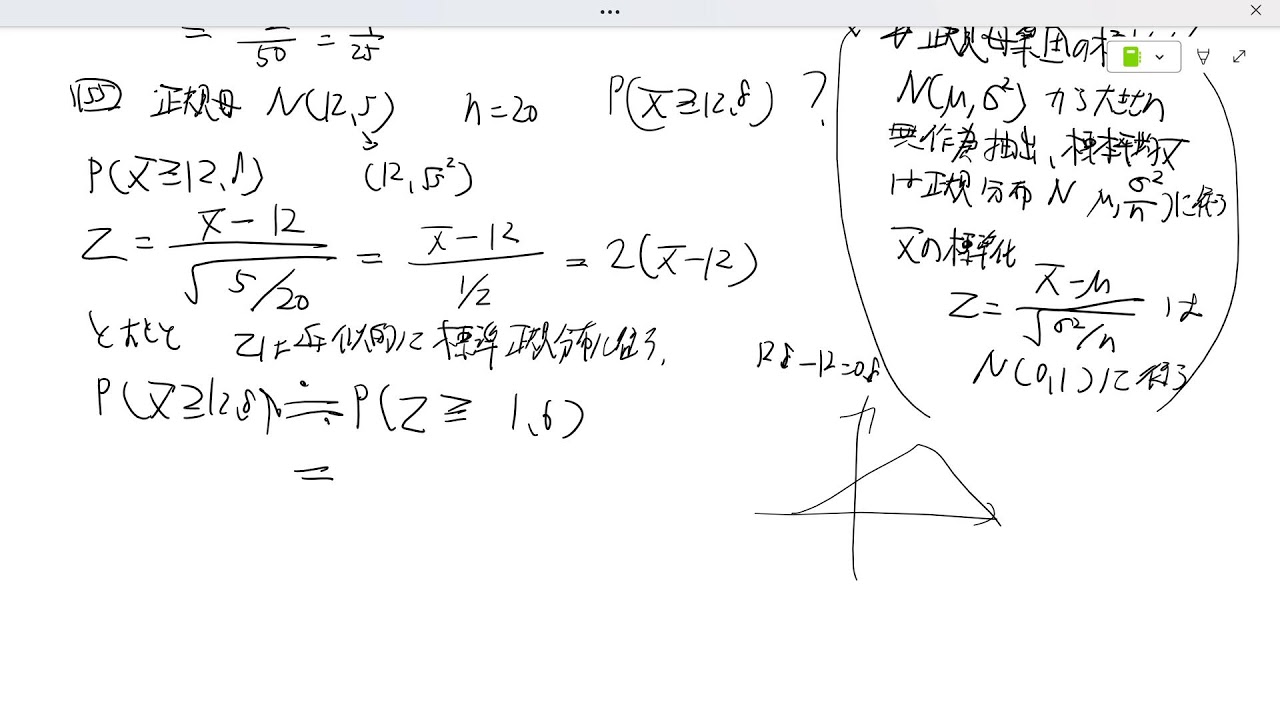 = /50 = 1/25
155 正規母 N(12,5) n=20 P(X̄≧12,8)?
P(X̄≧12,8) (12,√5²)
Z = X̄-12/√5/20 = X̄-12/1/2 = 2(X̄-12)
とおくと Zは近似的に標準正規分布に従う.
P(X̄≧12,8)≒P(Z≧ 1,6)
=
正規母集団の標
N(μ,σ²)から大きさn
無作為抽出、標本平均X̄
は正規分布 N μ,σ²/n)に従う
X̄の標準化
Z=X̄-μ/√σ²/n は
N(0,1)に従う
12,8-12=0,8